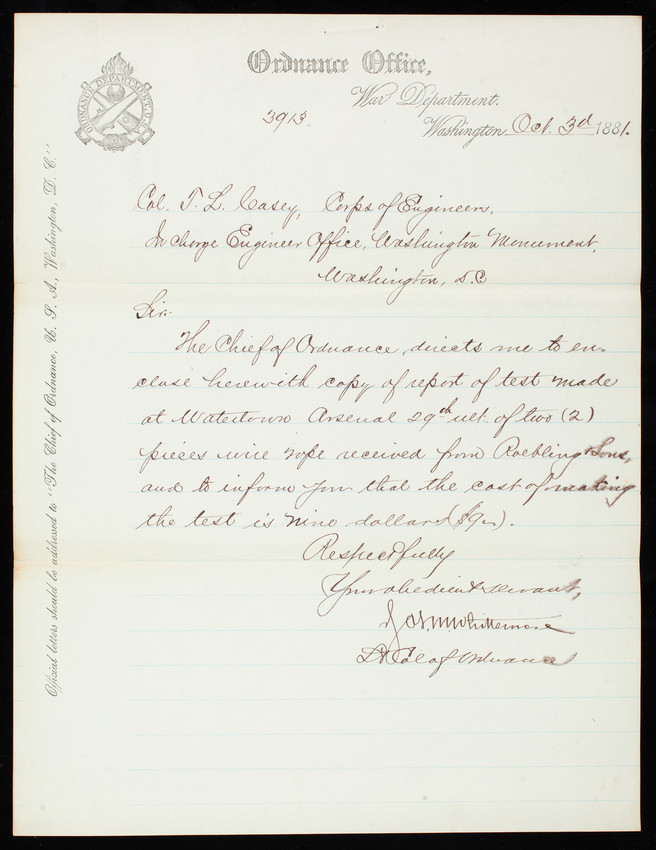 Ordnance Office,
War Department.
3913.
Washington Oct. 3d 1881.
ORDNANCE DEPARTMENT, U.S.A.
Official letters should be addressed to "The Chief of Ordnance, U. S. A., Washington, D. C."
Col. T. L. Casey, Corps of Engineers,
In charge Engineer Office, Washington Monument,
Washington, D.C
Sir:
The Chief of Ordnance directs me to en-
close herewith copy of report of test made
at Watertown Arsenal 29th ult. of two (2)
pieces wire rope received from Roebling & Sons,
and to inform you that the cost of making
the test is nine dollars
Respectfully
Your obedient servant,
Whittemore
Lt Col of Ordnance